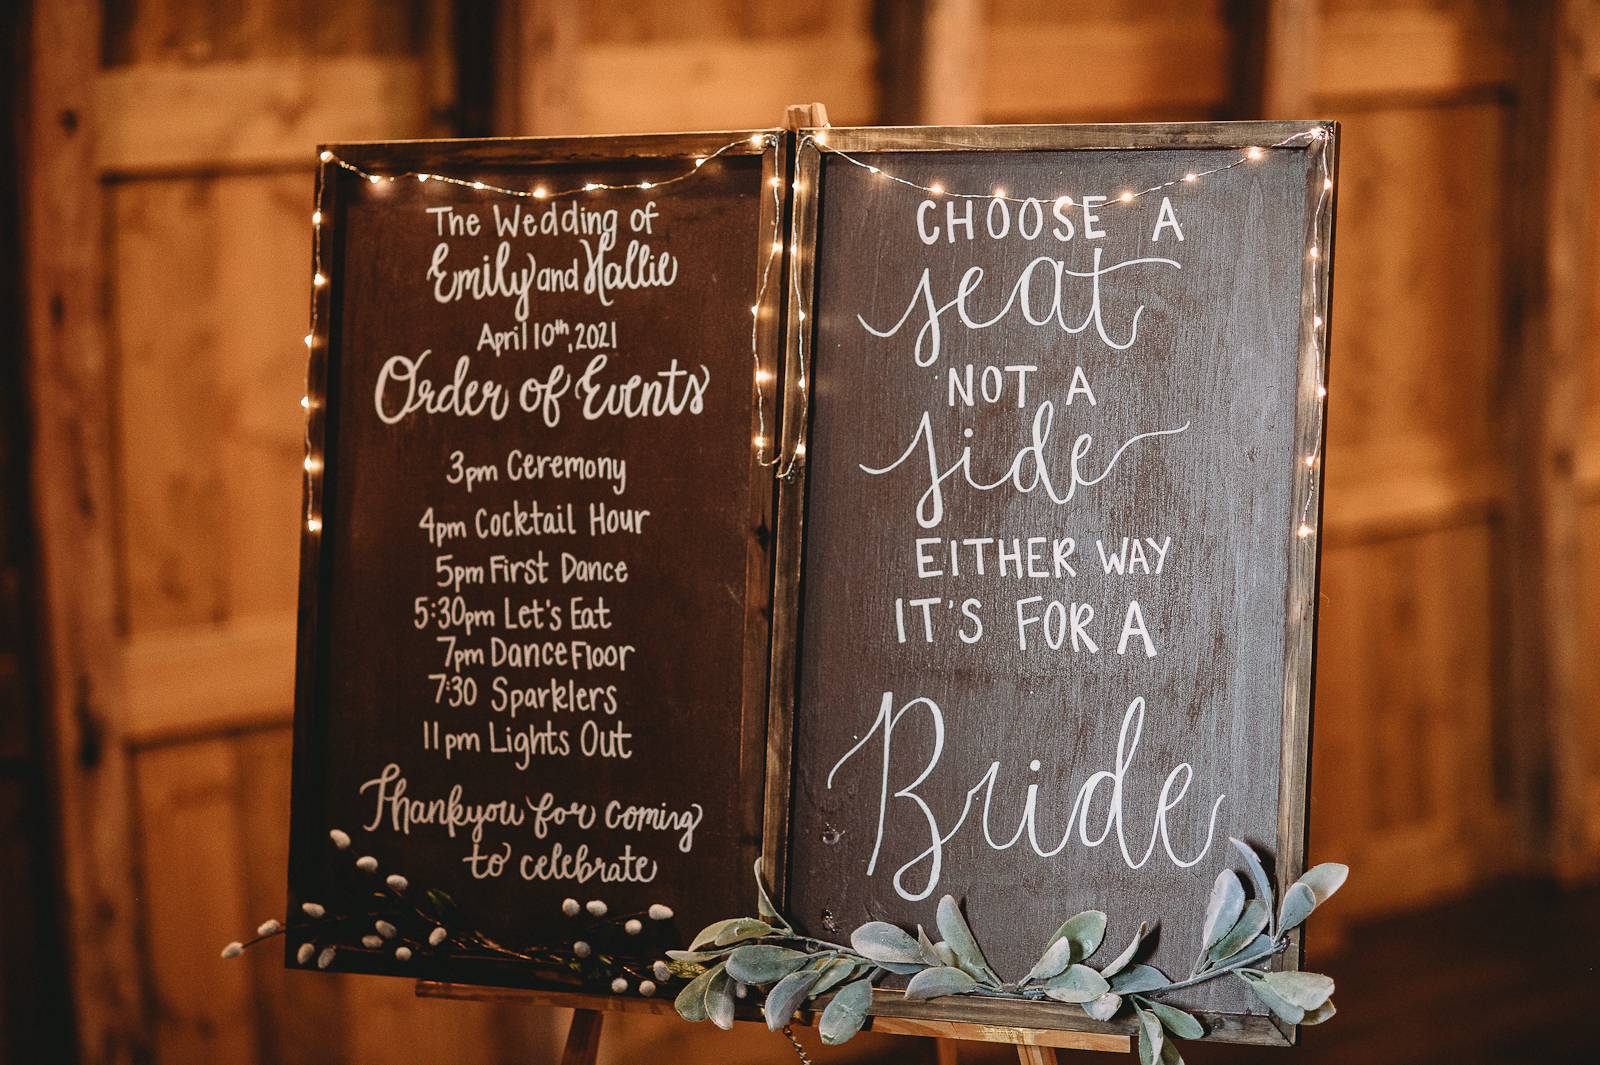 The Wedding of
Emily and Hallie
April 10th, 2021
Order of Events
3pm Ceremony
4pm Cocktail Hour
5pm First Dance
5:30pm Let's Eat
7pm Dance Floor
7:30 Sparklers
11pm Lights Out
Thankyou for coming
to celebrate
CHOOSE A
seat
NOT A
side
EITHER WAY
IT'S FOR A
Bride